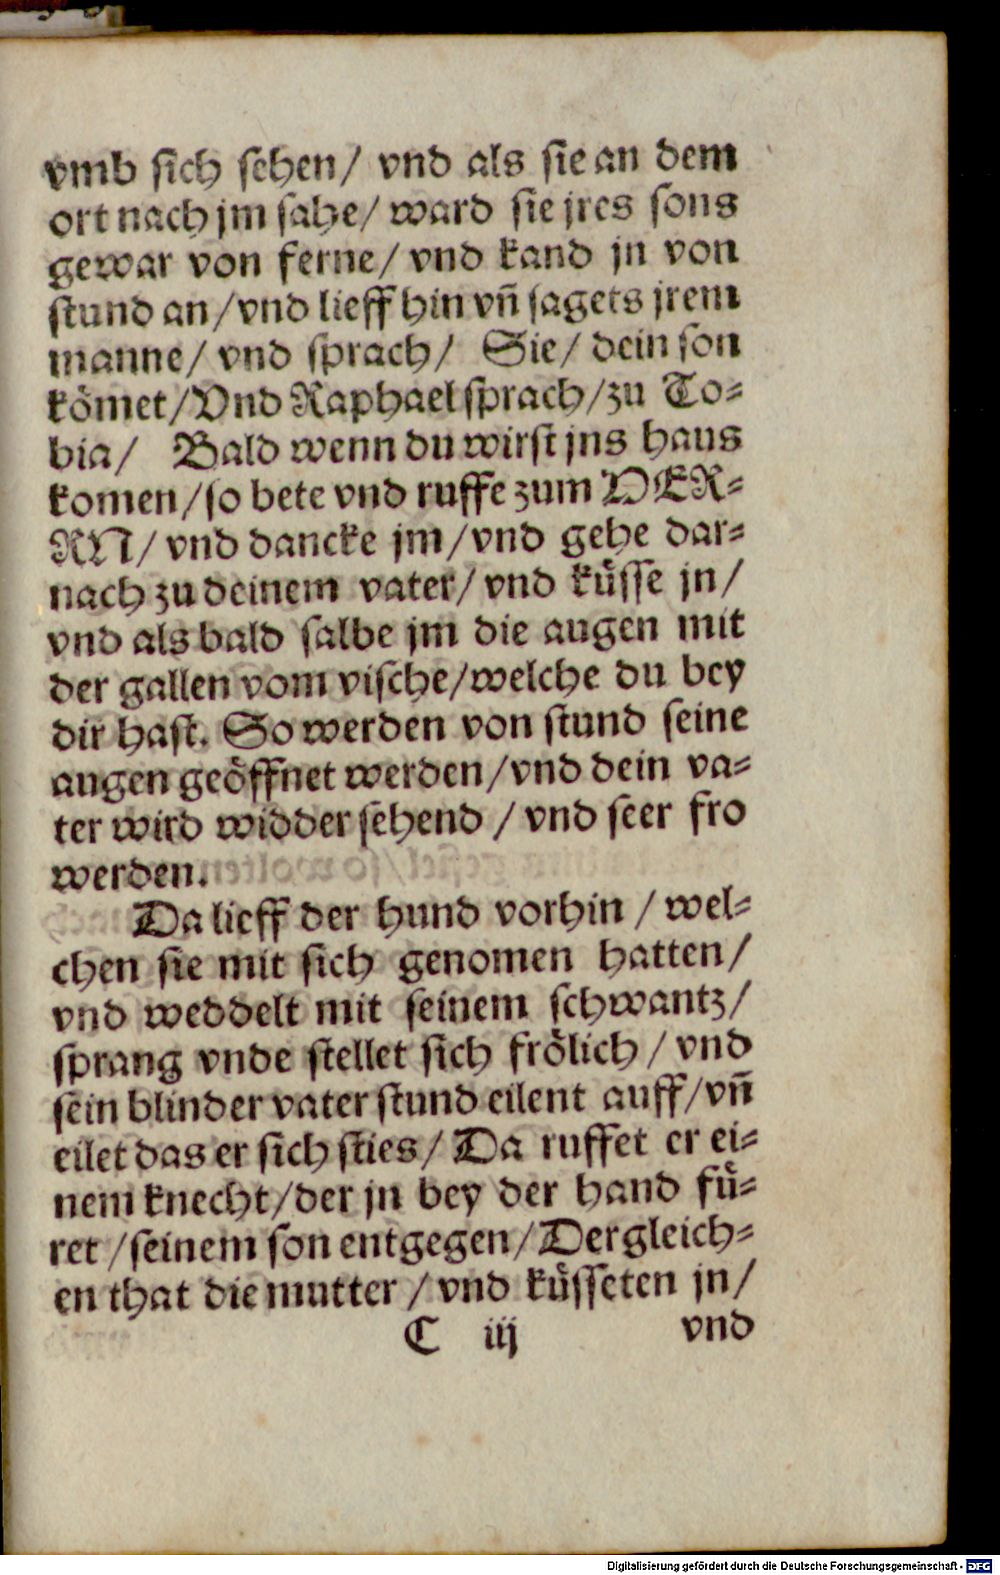 vmb sich sehen/ vnd als sie an dem
ort nach jm sahe/ ward sie jres sons
gewar von ferne/ vnd kand jn von
stund an/vnd lieff hin vn̄ sagets jrem
manne/ vnd sprach/ Sie/ dein son
kömet/Vnd Raphael sprach/zu To=
bia/ Bald wenn du wirst jns haus
komen/so bete vnd ruffe zum HER=
RN/ vnd dancke jm/vnd gehe dar=
nach zu deinem vater/ vnd küsse jn/
vnd als bald salbe jm die augen mit
der gallen vom vische/welche du bey
dir hast. So werden von stund seine
augen geöffnet werden/vnd dein va=
ter wird widder sehend / vnd seer fro
werden.
Da lieff der hund vorhin / wel=
chen sie mit sich genomen hatten/
vnd weddelt mit seinem schwantz/
sprang vnde stellet sich frölich / vnd
sein blinder vater stund eilent auff/vn̄
eilet das er sich sties/ Da ruffet er ei=
nem knecht/der jn bey der hand fü=
ret /seinem son entgegen/Dergleich=
en that die mutter / vnd küsseten jn/
C iij vnd
Digitalisierung gefördert durch die Deutsche Forschungsgemeinschaft - DFG